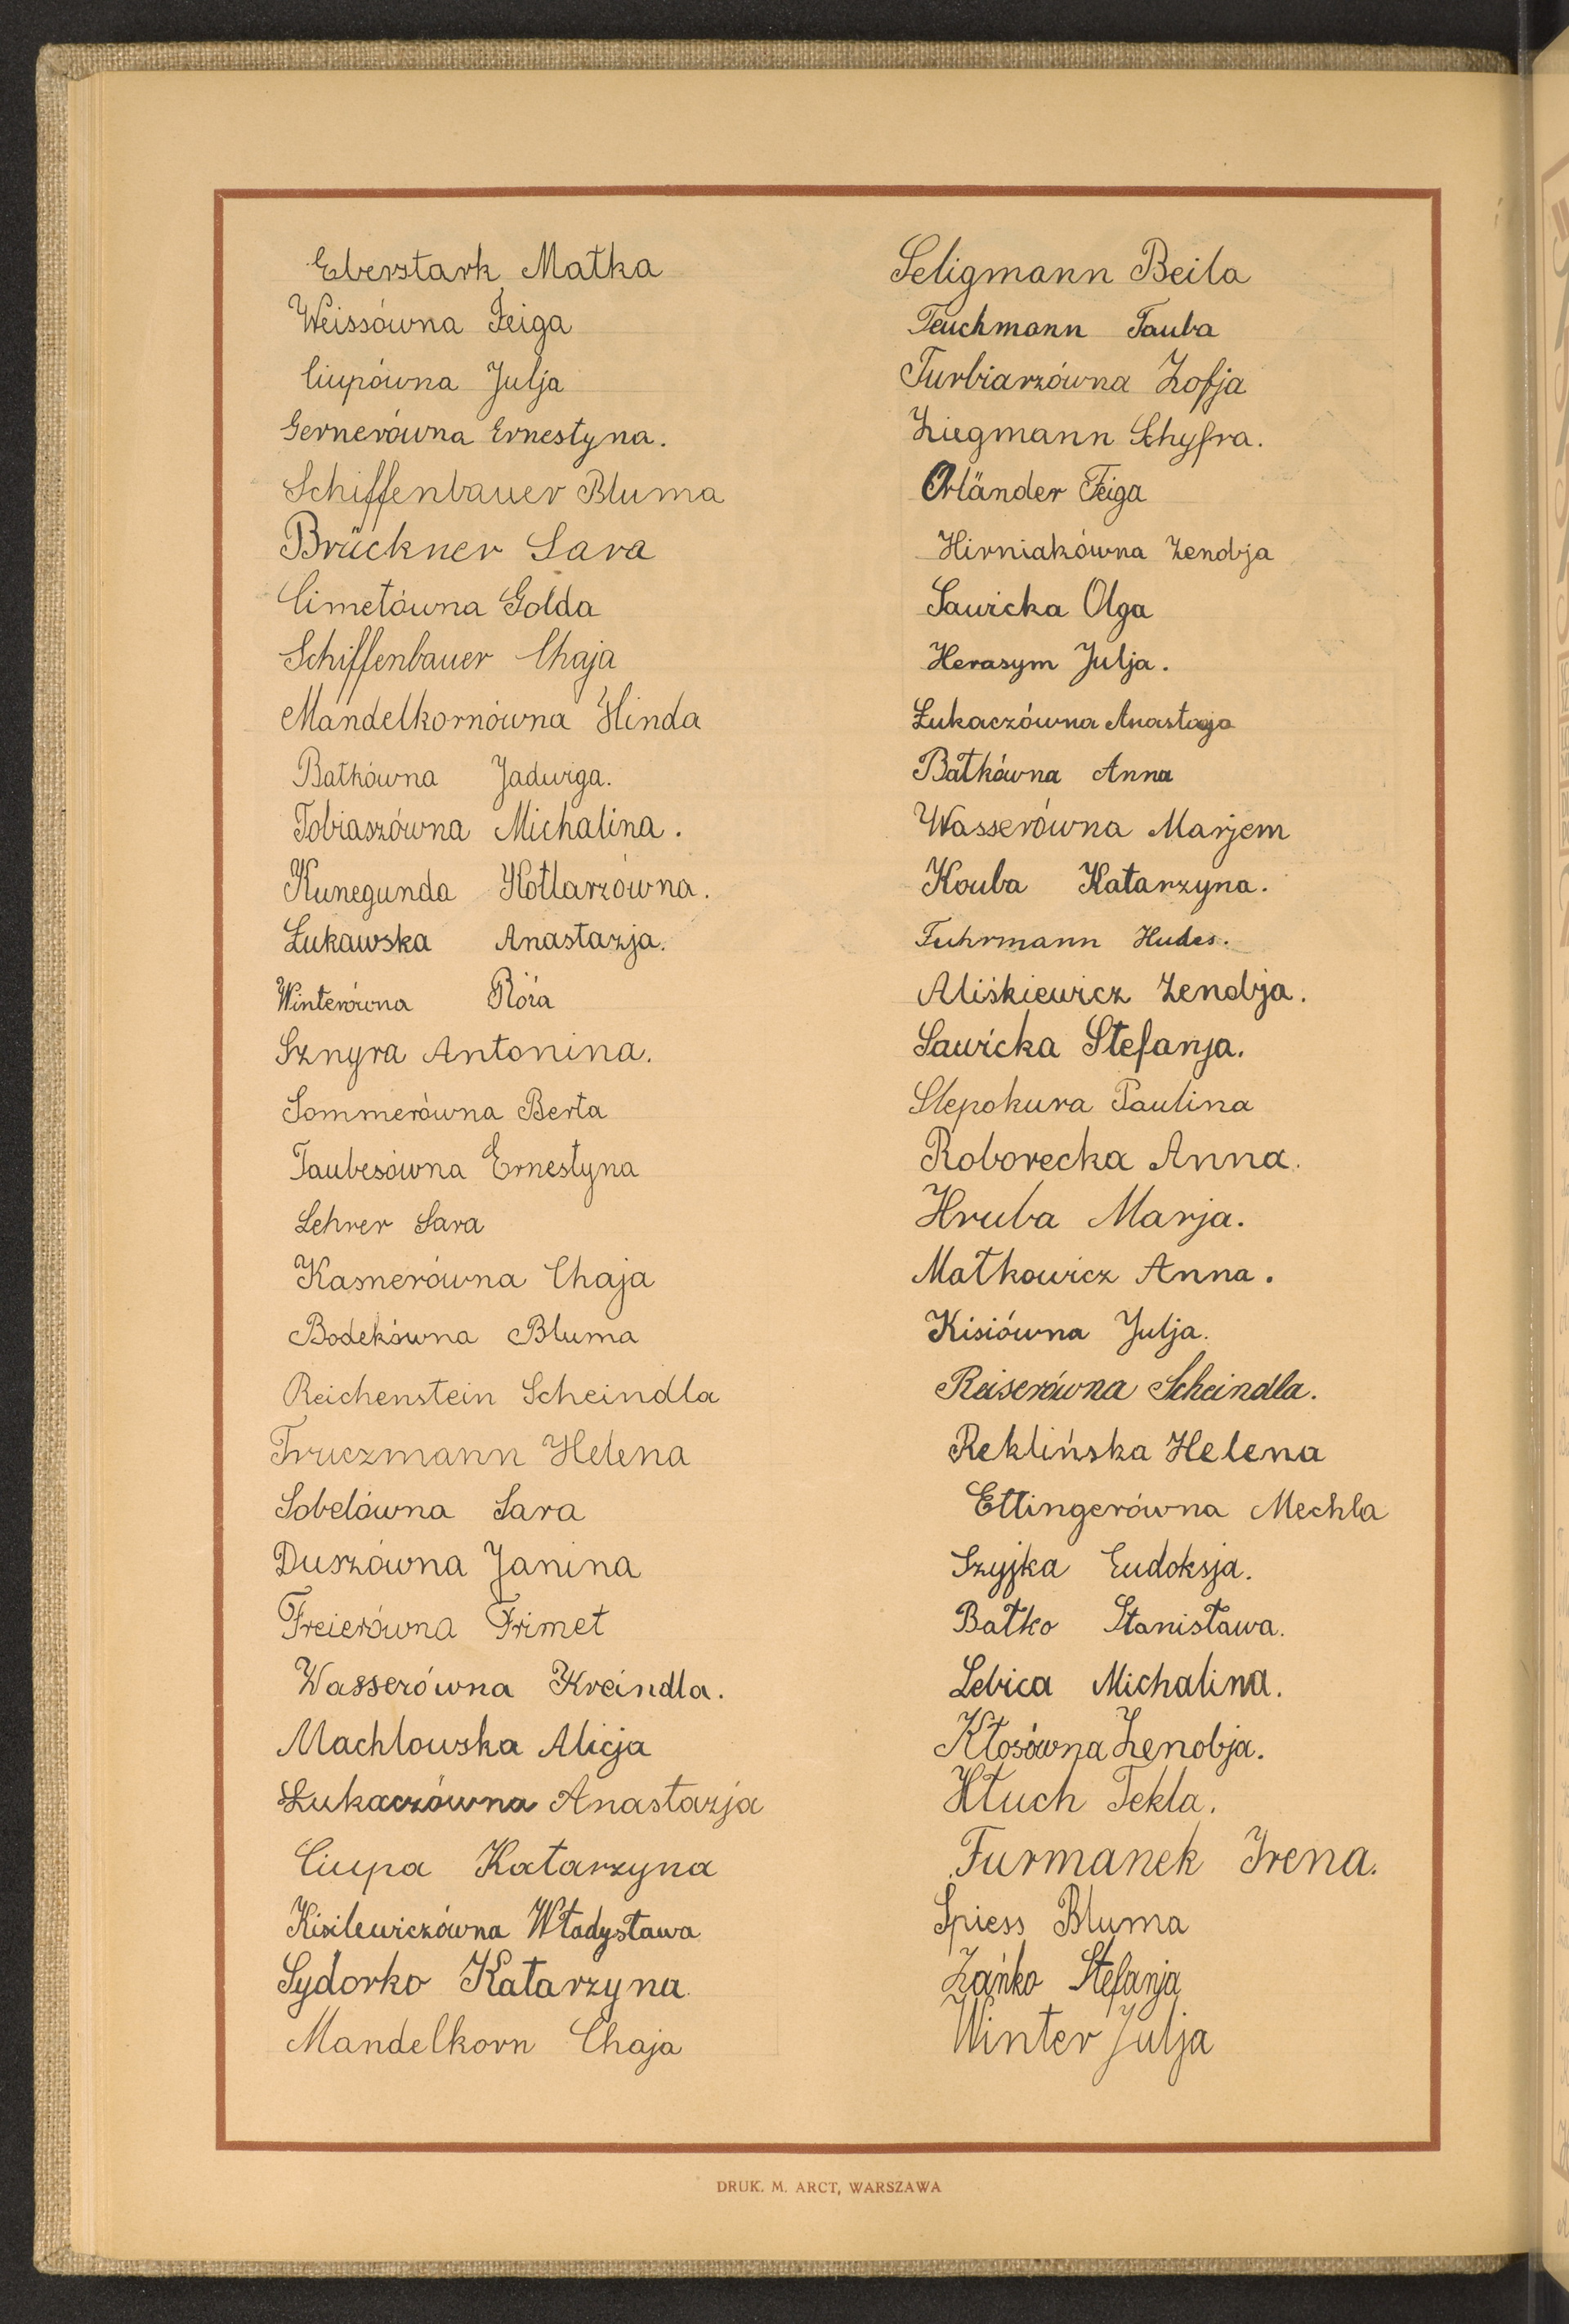 Eberstark Małka
Weissówna Feiga
Ciupówna Julja
Gernerówna Ernestyna.
Schiffenbauer Bluma
Brückner Sara
Cimetówna Golda
Schiffenbauer Chaja
Mandelkornówna Hinda
Bałkówna Jadwiga.
Tobiaszówna Michalina.
Kunegunda Kotlarzówna.
Łukawska Anastazja.
Winterówna Róża
Sznyra Antonina.
Sommerówna Berta
Taubesówna Ernestyna
Lehrer Sara
Kasnerówna Chaja
Bodekówna Bluma
Reichenstein Scheindla
Truczmann Helena
Sobelówna Sara
Duszówna Janina
Freierówna Frimet
Wasserówna Kreindla.
Machlowska Alicja
Łukaczówna Anastazja
Ciupa Katarzyna
Kisilewiczówna Władysława
Sydorko Katarzyna.
Mandelkorn Chaja
Seligmann Beila
Teuchmann Tauba
Turbiarzówna Zofja
Ziegmann Schyfra.
Orländer Feiga
Hirniakówna Zenobja
Sawicka Olga
Herasym Julja.
Łukaczówna Anastazja
Bałkówna Anna
Wasserówna Marjem
Kouba Katarzyna.
Fuhrmann Hudes.
Aliśkiewicz Zenobja.
Sawicka Stefanja.
Slepokura Paulina
Roborecka Anna.
Hruba Marja.
Małkowicz Anna.
Kisiówna Julja.
Reiserówna Scheindla.
Reklińska Helena
Ettingerówna Mechla
Szyjka Eudoksja.
Bałko Stanisława.
Lebica Michalina.
Kłosówna Zenobja.
Hłuch Tekla.
Furmanek Irena.
Spiess Bluma
Zańko Stefanja
Winter Julja
DRUK. M. ARCT, WARSZAWA